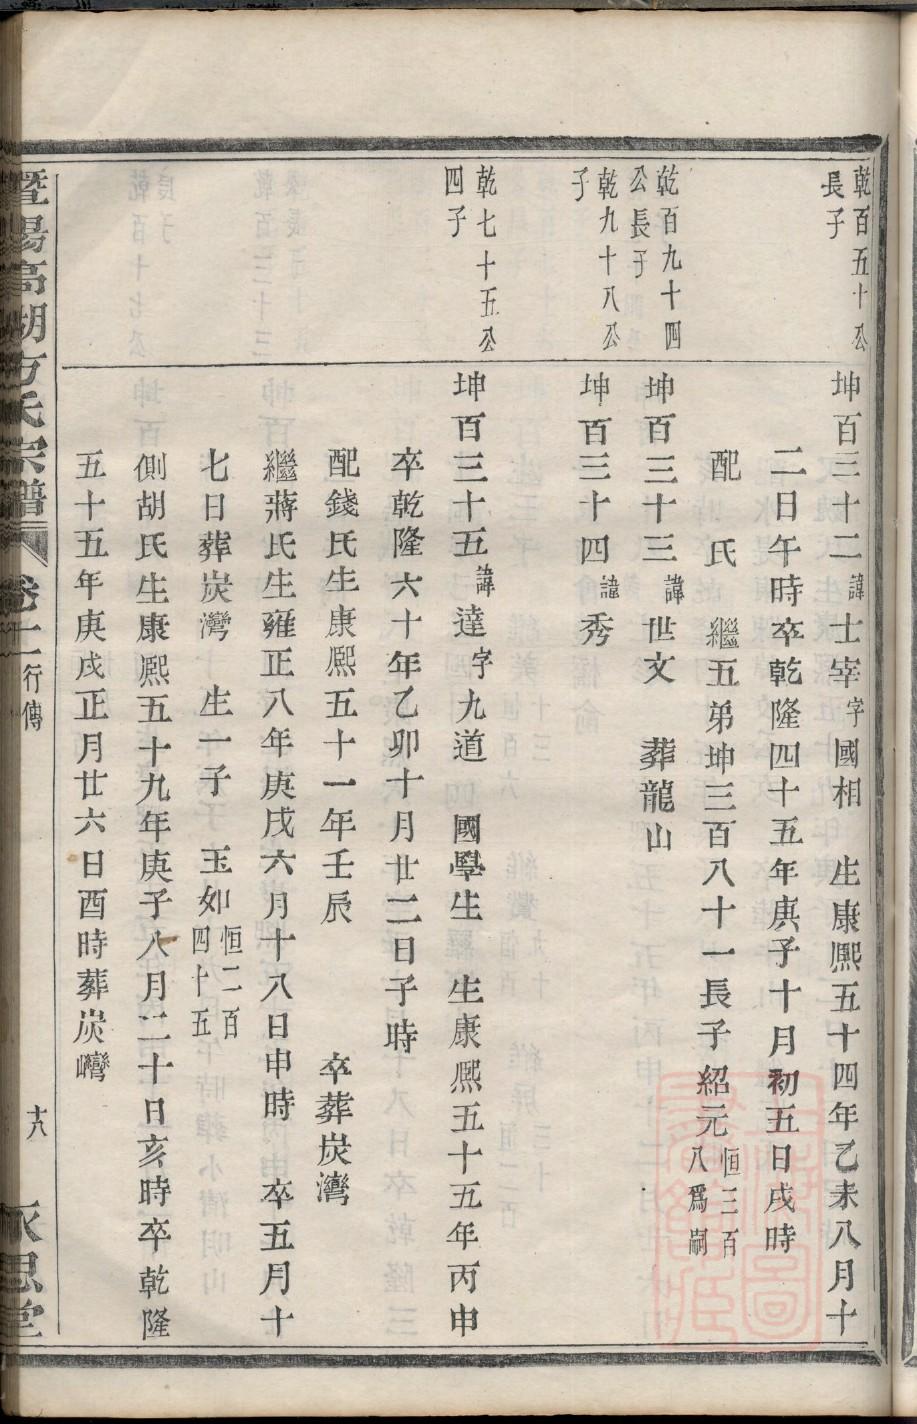 乾百五十公
長子
坤百三十二諱士宰字國相　生康熙五十四年乙未八月十
二日午時卒乾隆四十五年庚子十月初五日戌時
配　氏　繼五弟坤三百八十一長子紹元恒三百
八爲嗣
乾百九十四
公長子
坤百三十三諱世文　葬龍山
乾九十八公
子
坤百三十四諱秀
乾七十五公
四子
坤百三十五諱達字九道　國學生　生康熙五十五年丙申
卒乾隆六十年乙卯十月廿二日子時
配錢氏生康熙五十一年壬辰　卒葬炭灣
繼蔣氏生雍正八年庚戌六月十八日申時　卒五月十
七日葬炭灣　生一子　玉如恒二百
四十五
側胡氏生康熙五十九年庚子八月二十日亥時卒乾隆
五十五年庚戌正月廿六日酉時葬炭灣
暨陽高湖方氏宗譜　卷十二　行傳　十八　永思堂